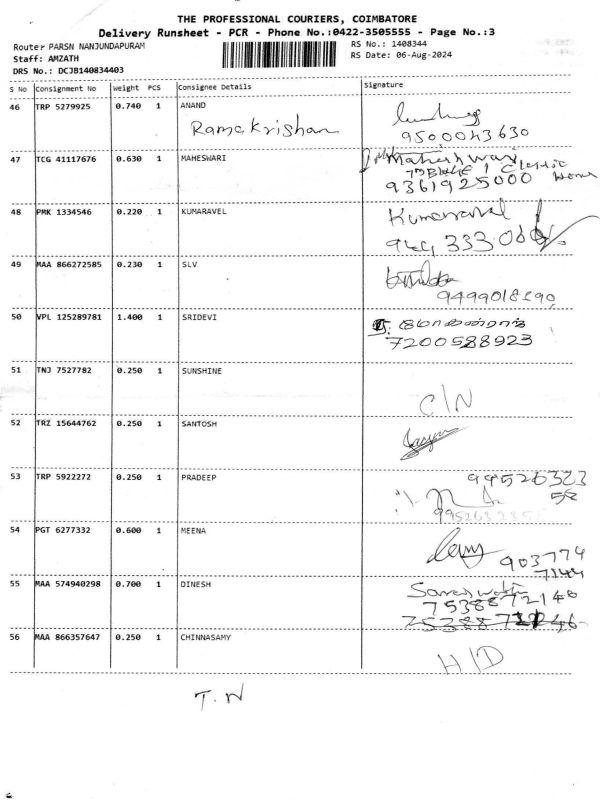 THE PROFESSIONAL COURIERS, COIMBATORE
Delivery Runsheet - PCR - Phone No.:0422-3505555 - Page No.:3
Router PARSN NANJUNDAPURAM
RS No.: 1408344
Staff: AMZATH
RS Date: 06-Aug-2024
DRS No.: DCJB140834403
S No Consignment No Weight PCS Consignee Details Signature
46 TRP 5279925 0.740 1 ANAND
Ramakrishan
9500043630
47 TCG 41117676 0.630 1 MAHESWARI
Maheshwari
9361925000
48 PMK 1334546 0.220 1 KUMARAVEL
Kumaraval
49 MAA 866272585 0.230 1 SLV
50 VPL 125289781 1.400 1 SRIDEVI
7200588923
51 TNJ 7527782 0.250 1 SUNSHINE
C/N
52 TRZ 15644762 0.250 1 SANTOSH
53 TRP 5922272 0.250 1 PRADEEP
99526323
58
54 PGT 6277332 0.600 1 MEENA
903774
7144
55 MAA 574940298 0.700 1 DINESH
7538872146
56 MAA 866357647 0.250 1 CHINNASAMY
H/D
T.N